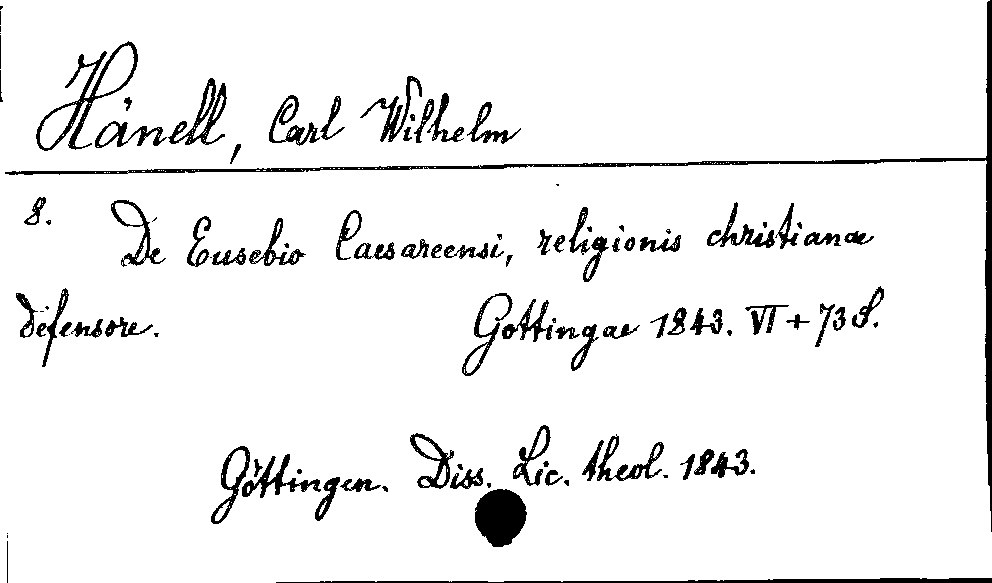 Hänell, Carl Wilhelm
8. De Eusebio Caesareensi, religionis christianae
defensore. Gottingae 1843. VI + 73 S.
Göttingen. Diss. Lic. theol. 1843.